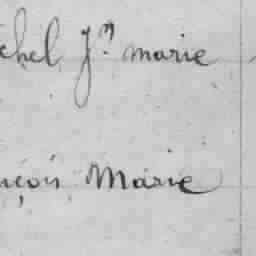 chel Jn marie
nçois Marie